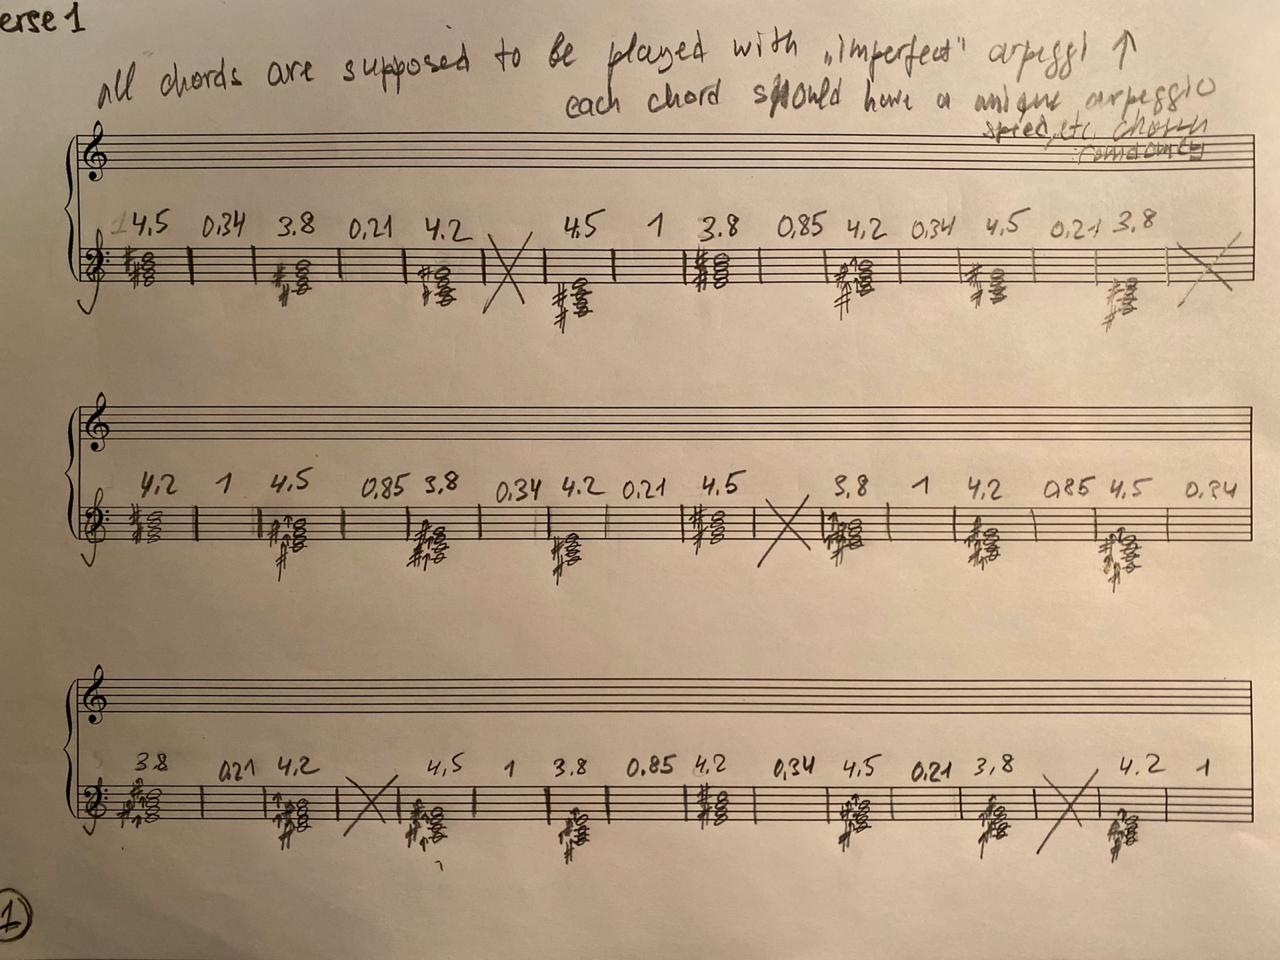 erse 1
all chords are supposed to be played with „imperfect" arpeggi ↑
each chord should have a unique arpeggio
speed, etc. chosen
randomly
4,5 0,34 3.8 0,21 4.2 4,5 1 3.8 0,85 4,2 0,34 4,5 0,21 3,8
4,2 1 4,5 0,85 3,8 0,34 4.2 0,21 4,5 3,8 1 4,2 0,85 4,5 0,34
3.8 0,21 4,2 4,5 1 3.8 0,85 4,2 0,34 4,5 0,21 3,8 4.2 1
1